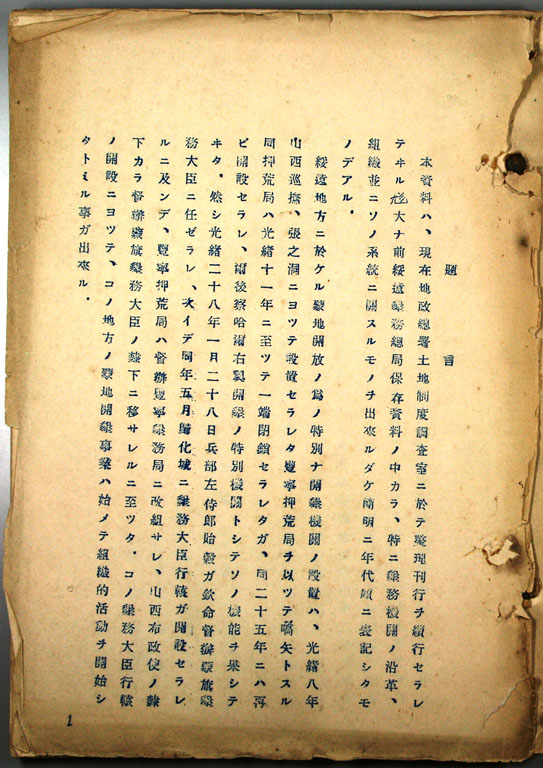 題言
本資料ハ、現在地政總署土地制度調査室ニ於テ整理刊行ヲ續行セラレ
テヰル尨大ナ前綏遠墾務總局保存資料ノ中カラ、特ニ墾務機關ノ沿革、
組織並ニソノ系統ニ關スルモノヲ出來ルダケ簡明ニ年代順ニ表記シタモ
ノデアル。
綏遠地方ニ於ケル蒙地開放ノ爲ノ特別ナ開墾機關ノ設置ハ、光緒八年
山西巡撫、張之洞ニヨツテ設置セラレタ豐寧押荒局ヲ以ツテ嚆矢トスル
同押荒局ハ光緒十一年ニ至ツテ一端閉鎖セラレタガ、同二十五年ニハ再
ビ開設セラレ、爾後察哈爾右翼開墾ノ特別機關トシテソノ機能ヲ果シテ
ヰタ。然シ光緒二十八年一月二十八日兵部左侍郎貽穀ガ欽命督辦蒙旗墾
務大臣ニ任ゼラレ、次イデ同年五月歸化城ニ墾務大臣行轅ガ開設セラレ
ルニ及ンデ、豐寧押荒局ハ督辦豐寧墾務局ニ改組サレ、山西布政使ノ隷
下カラ督辦蒙旗墾務大臣ノ隷下ニ移サレルニ至ツタ。コノ墾務大臣行轅
ノ開設ニヨツテ、コノ地方ノ蒙地開墾事業ハ始メテ組織的活動ヲ開始シ
タトミル事ガ出來ル。
1